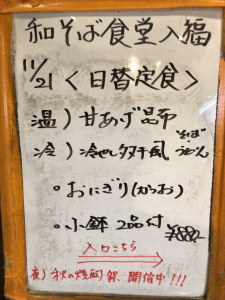 和そば食堂入福
11/21 <日替定食>
温) 甘あげ昆布
冷) 冷せしタヌキ風
そば
うどん
○おにぎり(かつお)
○小鉢 2品付
¥880-
入口こちら
夜) 秋の焼酎祭、開催中!!!